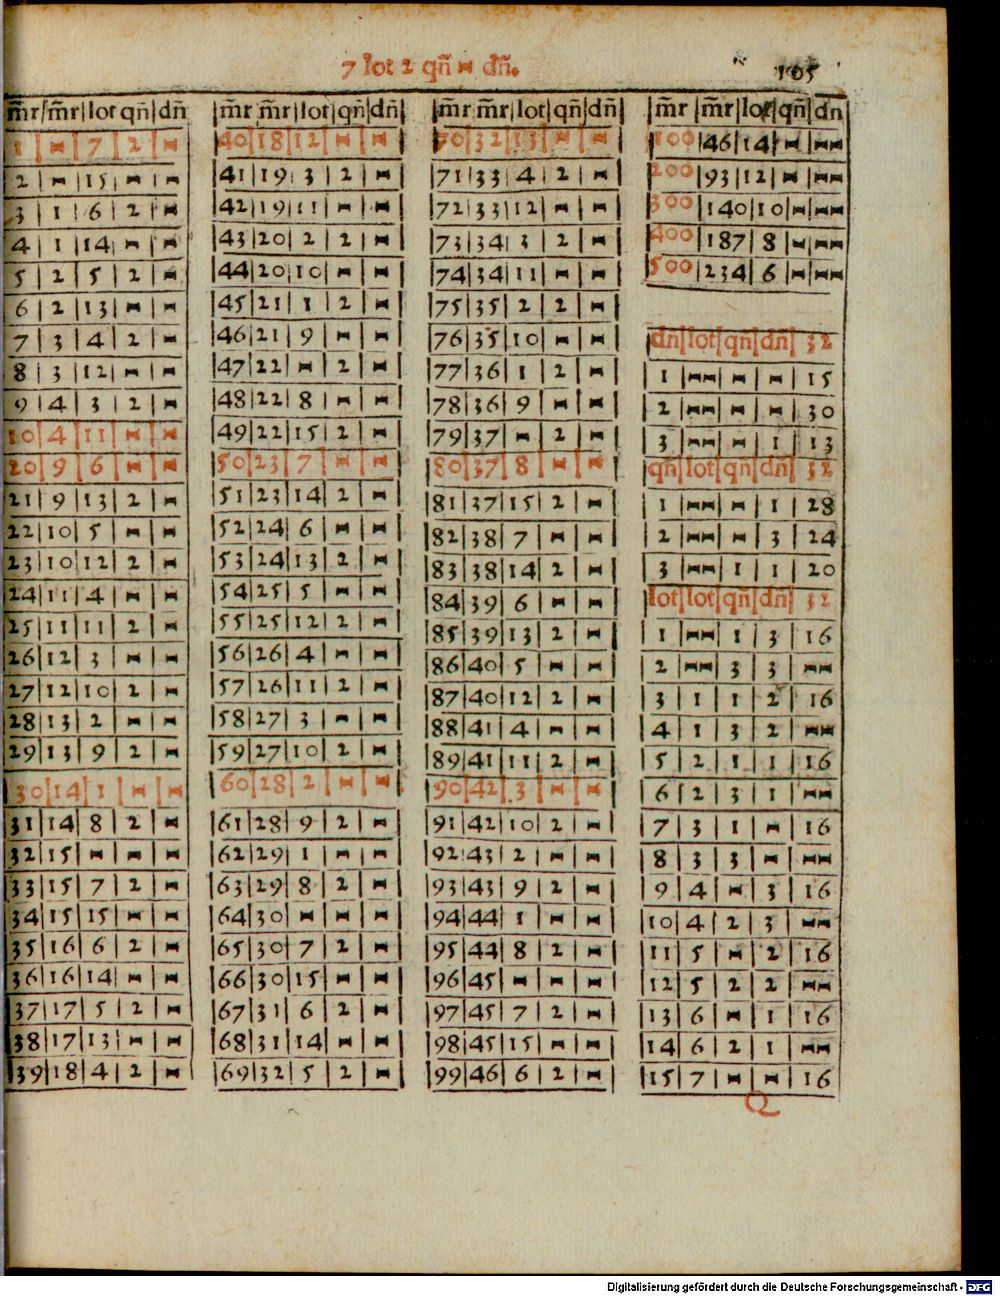 7 lot 2 qñ - dñ.
105
m̃r|m̃r|lot|qñ|dñ
1|-|7|2|-
2|-|15|-|-
3|1|6|2|-
4|1|14|-|-
5|2|5|2|-
6|2|13|-|-
7|3|4|2|-
8|3|12|-|-
9|4|3|2|-
10|4|11|-|-
20|9|6|-|-
21|9|13|2|-
22|10|5|-|-
23|10|12|2|-
24|11|4|-|-
25|11|11|2|-
26|12|3|-|-
27|12|10|2|-
28|13|2|-|-
29|13|9|2|-
30|14|1|-|-
31|14|8|2|-
32|15|-|-|-
33|15|7|2|-
34|15|15|-|-
35|16|6|2|-
36|16|14|-|-
37|17|5|2|-
38|17|13|-|-
39|18|4|2|-
m̃r|m̃r|lot|qñ|dñ
40|18|12|-|-
41|19|3|2|-
42|19|11|-|-
43|20|2|2|-
44|20|10|-|-
45|21|1|2|-
46|21|9|-|-
47|22|-|2|-
48|22|8|-|-
49|22|15|2|-
50|23|7|-|-
51|23|14|2|-
52|24|6|-|-
53|24|13|2|-
54|25|5|-|-
55|25|12|2|-
56|26|4|-|-
57|26|11|2|-
58|27|3|-|-
59|27|10|2|-
60|28|2|-|-
61|28|9|2|-
62|29|1|-|-
63|29|8|2|-
64|30|-|-|-
65|30|7|2|-
66|30|15|-|-
67|31|6|2|-
68|31|14|-|-
69|32|5|2|-
m̃r|m̃r|lot|qñ|dñ
70|32|13|-|-
71|33|4|2|-
72|33|12|-|-
73|34|3|2|-
74|34|11|-|-
75|35|2|2|-
76|35|10|-|-
77|36|1|2|-
78|36|9|-|-
79|37|-|2|-
80|37|8|-|-
81|37|15|2|-
82|38|7|-|-
83|38|14|2|-
84|39|6|-|-
85|39|13|2|-
86|40|5|-|-
87|40|12|2|-
88|41|4|-|-
89|41|11|2|-
90|42|3|-|-
91|42|10|2|-
92|43|2|-|-
93|43|9|2|-
94|44|1|-|-
95|44|8|2|-
96|45|-|-|-
97|45|7|2|-
98|45|15|-|-
99|46|6|2|-
m̃r|m̃r|lot|qñ|dñ
100|46|14|-|--
200|93|12|-|--
300|140|10|-|--
400|187|8|-|--
500|234|6|-|--
dñ|lot|qñ|dñ|32
1|--|-|-|15
2|--|-|-|30
3|--|-|1|13
qñ|lot|qñ|dñ|32
1|--|-|1|28
2|--|-|3|24
3|--|1|1|20
lot|lot|qñ|dñ|32
1|--|1|3|16
2|--|3|3|--
3|1|1|2|16
4|1|3|2|--
5|2|1|1|16
6|2|3|1|--
7|3|1|-|16
8|3|3|-|--
9|4|-|3|16
10|4|2|3|--
11|5|-|2|16
12|5|2|2|--
13|6|-|1|16
14|6|2|1|--
15|7|-|-|16
Q
Digitalisierung gefördert durch die Deutsche Forschungsgemeinschaft - DFG